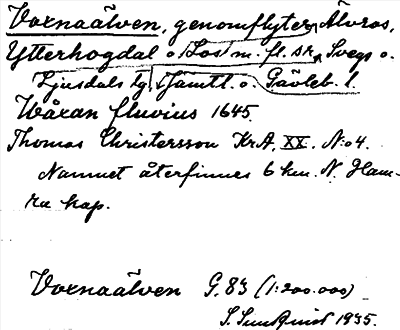 Voxnaälven, genomflyter Älvros,
Ytterhogdal o. Los m. fl. sk, Svegs o.
Ljusdals tg, Jämtl. o. Gävleb. l.
Wåxan fluvius 1645.
Thomas Christersson KrA. XX. N:o 4.
Namnet återfinnes 6 km. N. Ham-
ra kap.
Voxnaälven G. 83 (1:200.000)
S. Sundquist 1935.